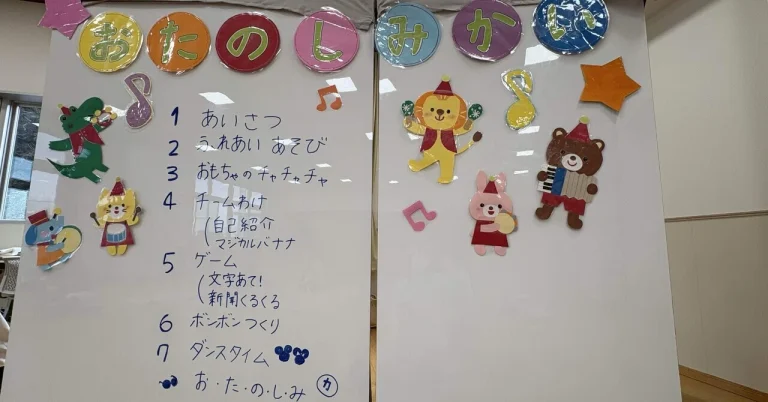 おたのしみかい
1 あいさつ
2 ふれあい あそび
3 おもちゃのチャチャチャ
4 チームわけ
(自己紹介
マジカルバナナ
5 ゲーム
(文字あて!
新聞くるくる
6 ボンボンつくり
7 ダンスタイム
お・た・の・し・み カ